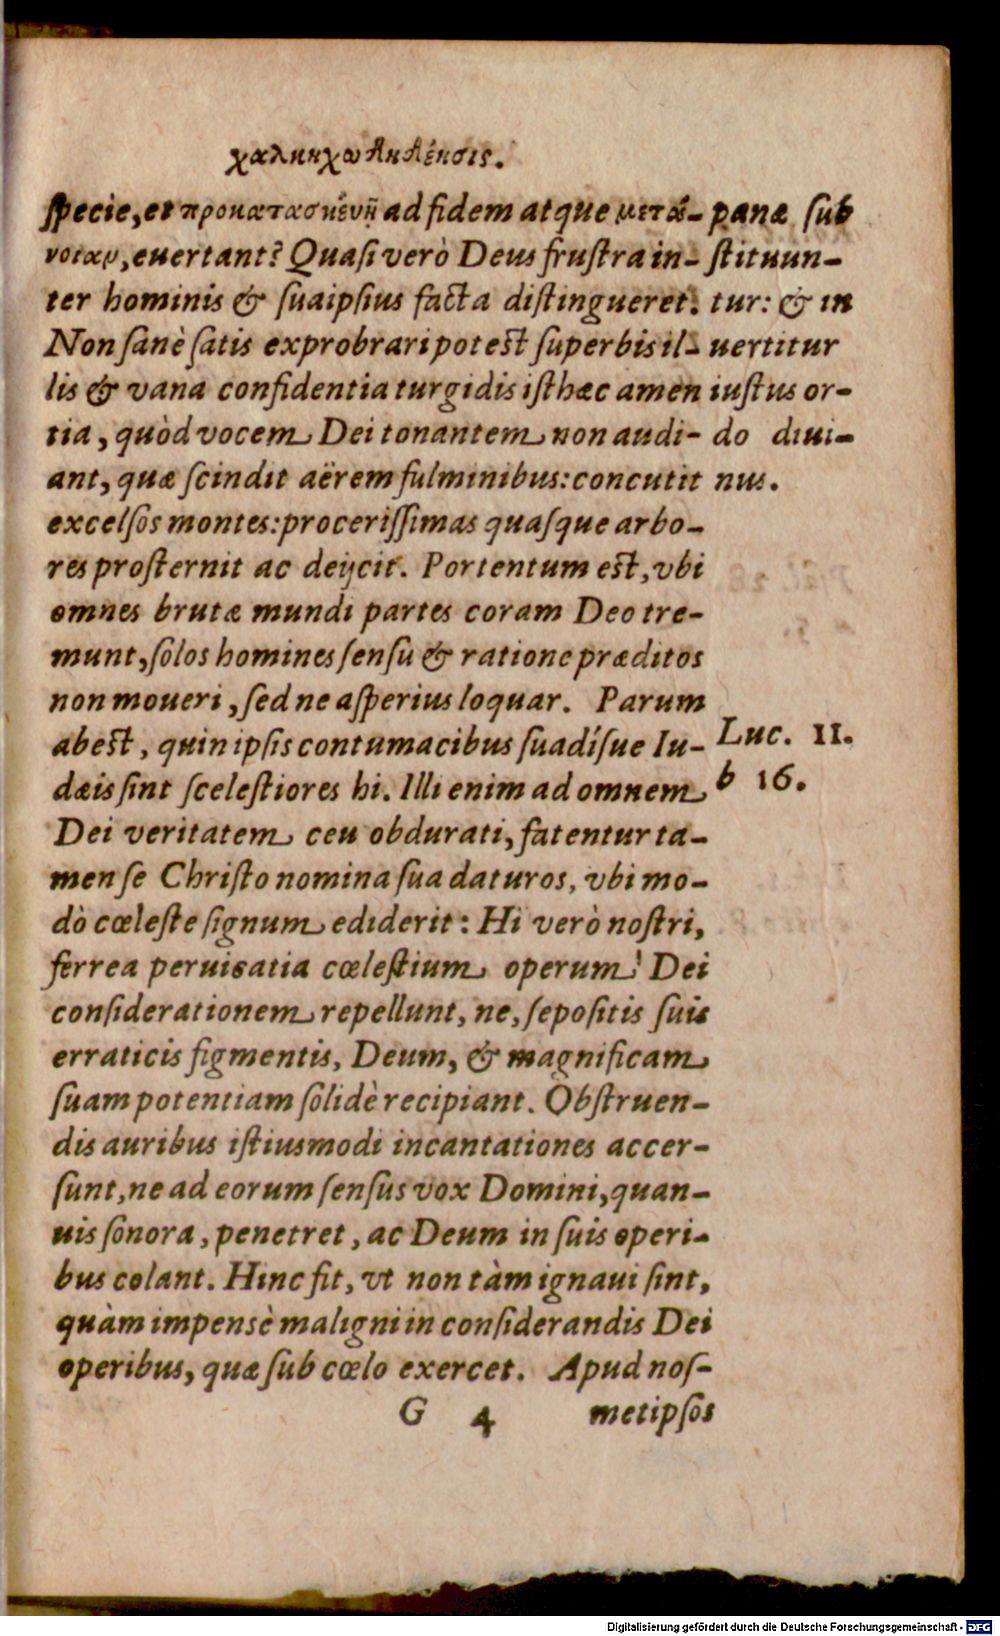 χαληκχωΛκΛέκσις.
ſpecie, et προκατασκευῇ ad fidem atque μετά-
νοιαν, euertant? Quaſi verò Deus fruſtra in-
ter hominis & ſuaipſius facta diſtingueret.
Non ſanè ſatis exprobrari poteſt ſuperbis il-
lis & vana confidentia turgidis iſthæc amen
tia, quòd vocem Dei tonantem non audi-
ant, quæ ſcindit aërem fulminibus: concutit
excelſos montes: proceriſſimas quaſque arbo-
res proſternit ac deijcit. Portentum eſt, vbi
omnes brutæ mundi partes coram Deo tre-
munt, ſolos homines ſenſu & ratione præditos
non moueri, ſed ne aſperius loquar. Parum
abeſt, quin ipſis contumacibus ſuadíſue Iu-
dæis ſint ſceleſtiores hi. Illi enim ad omnem
Dei veritatem ceu obdurati, fatentur ta-
men ſe Chriſto nomina ſua daturos, vbi mo-
dò cœleſte ſignum ediderit: Hi verò noſtri,
ferrea peruicatia cœleſtium operum Dei
conſiderationem repellunt, ne, ſepoſitis ſuis
erraticis figmentis, Deum, & magnificam
ſuam potentiam ſolidè recipiant. Obſtruen-
dis auribus iſtiusmodi incantationes accer-
ſunt, ne ad eorum ſenſus vox Domini, quan-
uis ſonora, penetret, ac Deum in ſuis operi-
bus colant. Hinc fit, vt non tàm ignaui ſint,
quàm impensè maligni in conſiderandis Dei
operibus, quæ ſub cœlo exercet. Apud noſ-
G 4 metipſos
panæ ſub
ſtituun-
tur: & in
uertitur
iuſtus or-
do diui-
nus.
Luc. 11.
b 16.
Digitalisierung gefördert durch die Deutsche Forschungsgemeinschaft - DFG